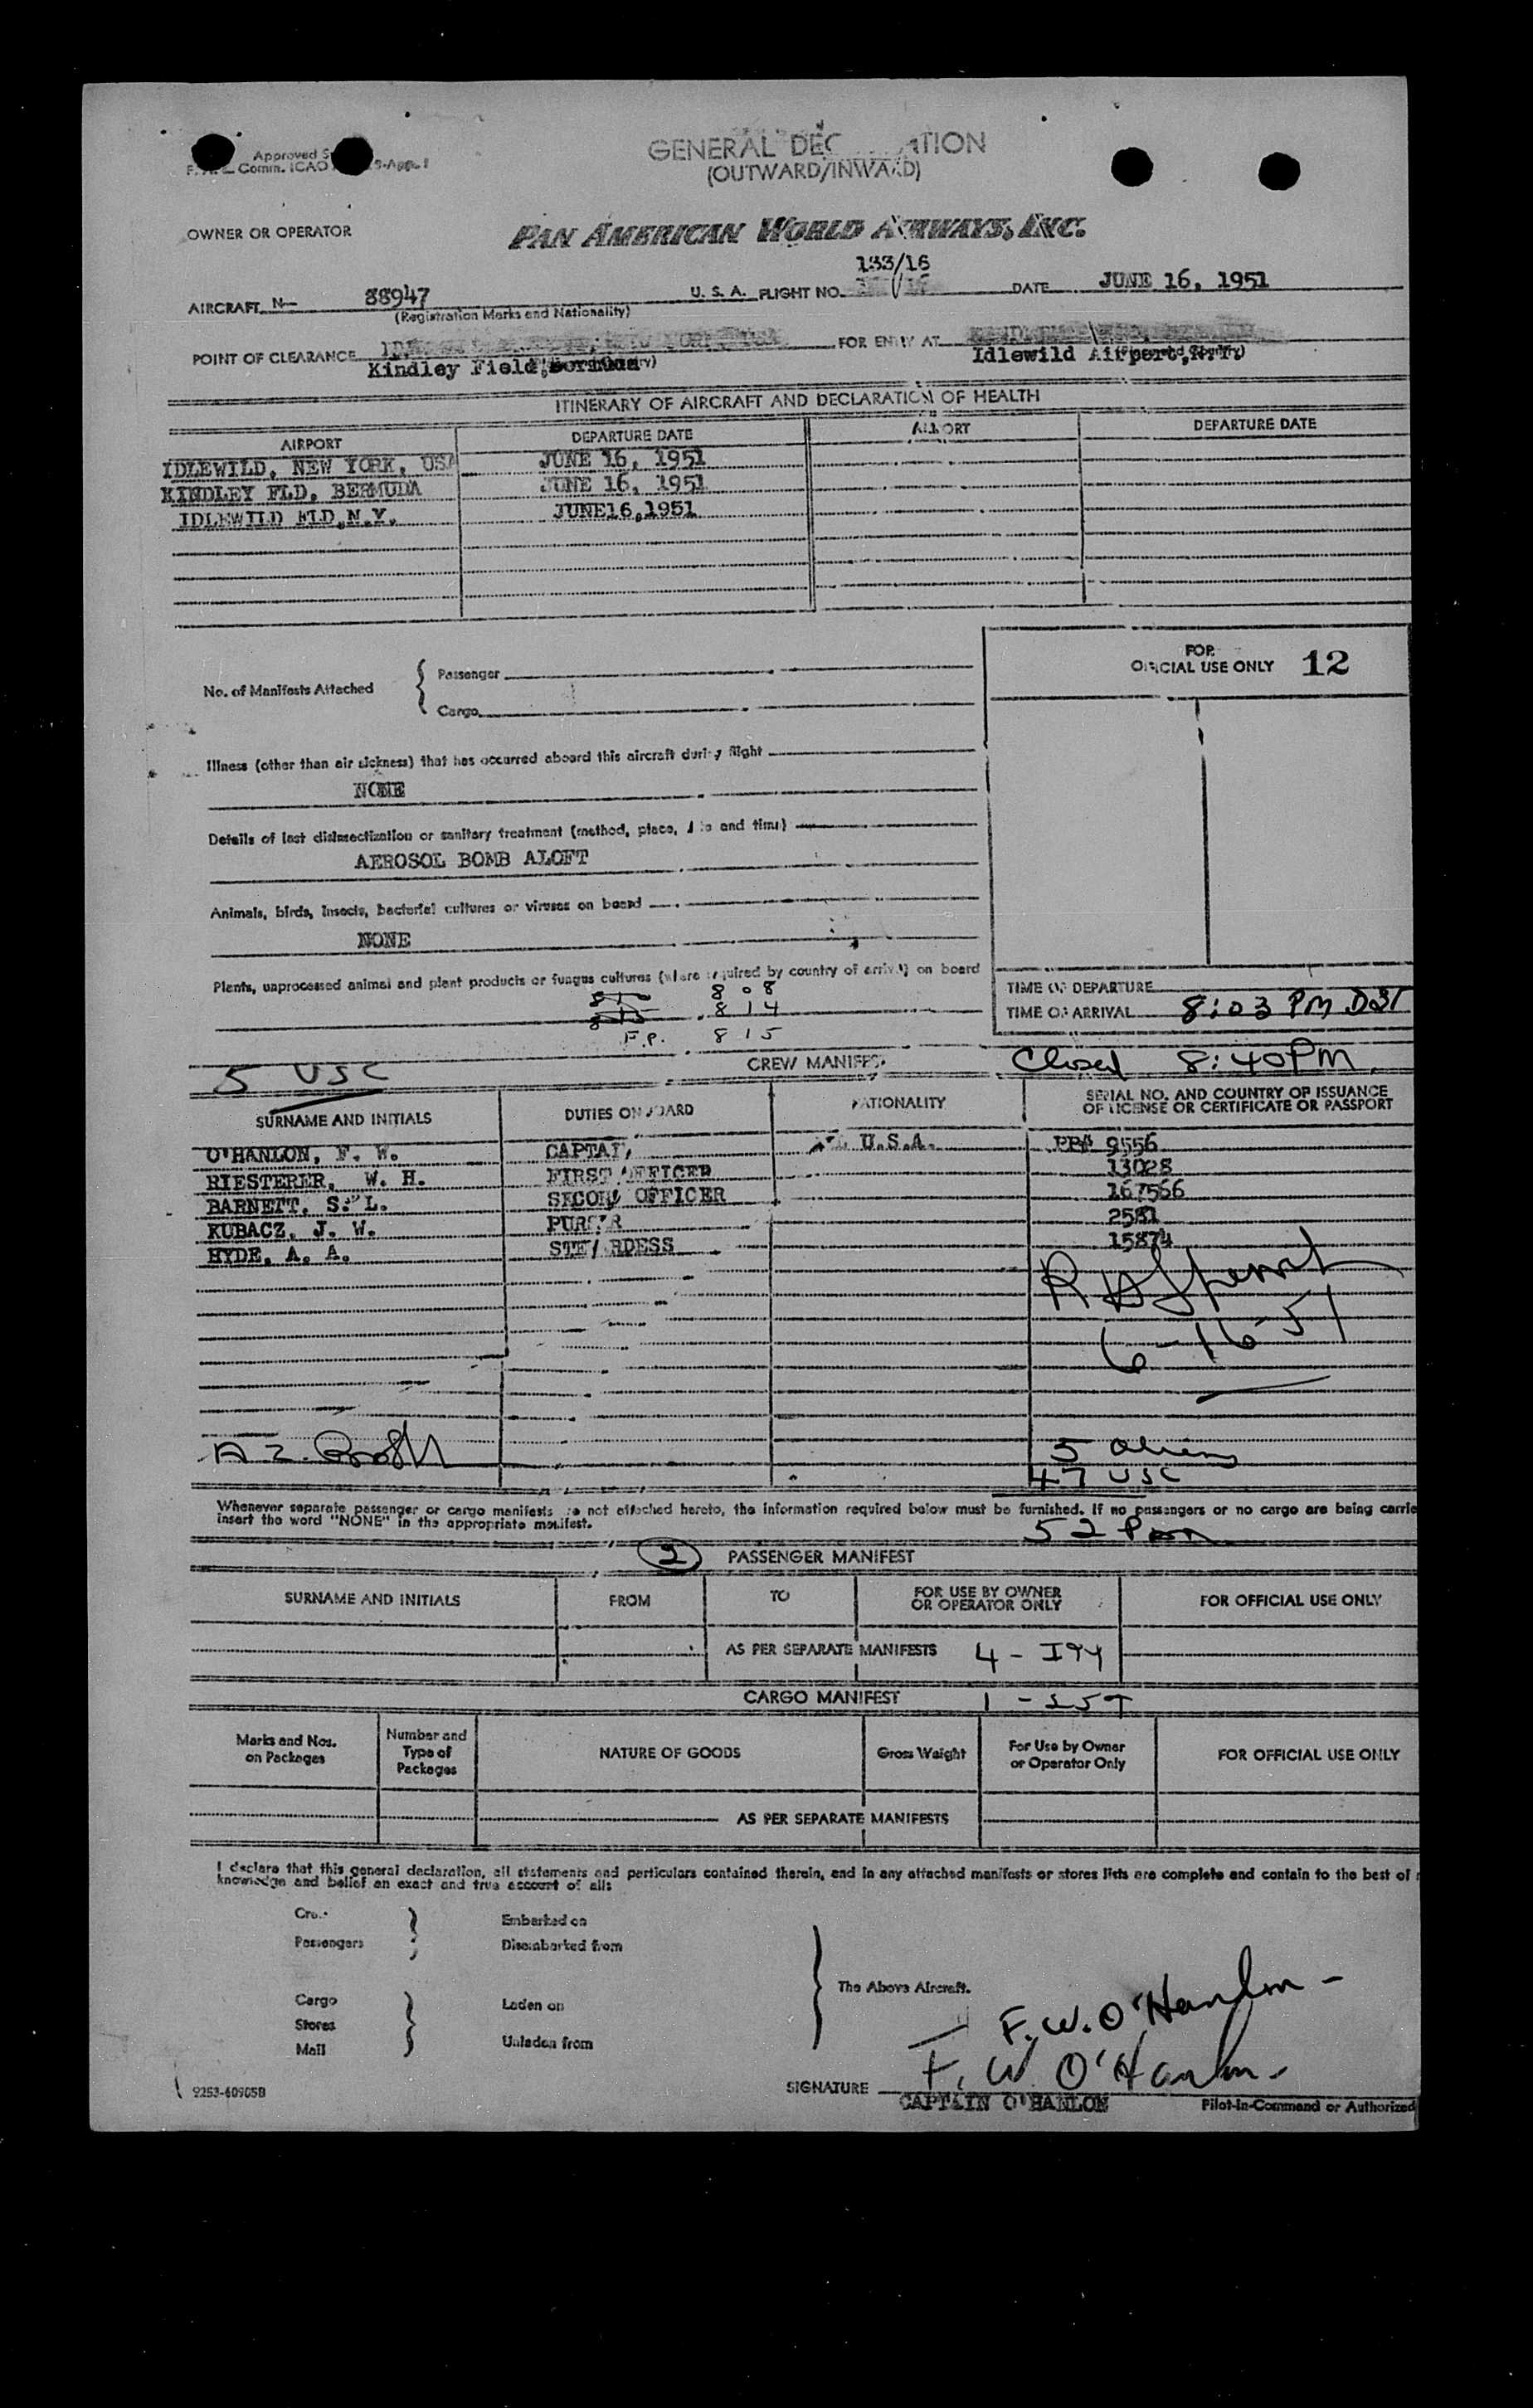 GENERAL DEC ATION
(OUTWARD/INWARD)
Approved
Comm. ICAO 9-App. 1
OWNER OR OPERATOR
PAN AMERICAN WORLD AIRWAYS, INC.
133/16
AIRCRAFT N- 88947 U. S. A. FLIGHT NO. DATE JUNE 16, 1951
(Registration Marks and Nationality)
POINT OF CLEARANCE FOR ENTRY AT
Kindley Field, Bermuda Idlewild Airport, N.Y.
ITINERARY OF AIRCRAFT AND DECLARATION OF HEALTH
AIRPORT DEPARTURE DATE AIRPORT DEPARTURE DATE
IDLEWILD, NEW YORK, USA JUNE 16, 1951
KINDLEY FLD, BERMUDA JUNE 16, 1951
IDLEWILD FLD,N.Y. JUNE16,1951
FOR
OFFICIAL USE ONLY 12
No. of Manifests Attached
Passenger
Cargo
Illness (other than air sickness) that has occurred aboard this aircraft during flight
NONE
Details of last disinsectization or sanitary treatment (method, place, date and time)
AEROSOL BOMB ALOFT
Animals, birds, insects, bacterial cultures or viruses on board
NONE
Plants, unprocessed animal and plant products or fungus cultures (where required by country of arrival) on board
808
815 814
F.P. 815
TIME OF DEPARTURE
TIME OF ARRIVAL 8:03 PM DST
5 USC CREW MANIFEST Closed 8:40PM
SURNAME AND INITIALS DUTIES ON BOARD NATIONALITY SERIAL NO. AND COUNTRY OF ISSUANCE
OF LICENSE OR CERTIFICATE OR PASSPORT
O'HANLON, F. W. CAPTAIN U.S.A. PP# 9556
RIESTERER, W. H. FIRST OFFICER 13028
BARNETT, S. L. SECOND OFFICER 167566
KUBACZ, J. W. PURSER 2581
HYDE, A. A. STEWARDESS 15874
6-16-51
5 aliens
47 USC
Whenever separate passenger or cargo manifests are not attached hereto, the information required below must be furnished. If no passengers or no cargo are being carrie
insert the word "NONE" in the appropriate manifest.
52 Pass
2 PASSENGER MANIFEST
SURNAME AND INITIALS FROM TO FOR USE BY OWNER
OR OPERATOR ONLY FOR OFFICIAL USE ONLY
AS PER SEPARATE MANIFESTS 4 - I94
CARGO MANIFEST 1 - 257
Marks and Nos.
on Packages Number and
Type of
Packages NATURE OF GOODS Gross Weight For Use by Owner
or Operator Only FOR OFFICIAL USE ONLY
AS PER SEPARATE MANIFESTS
I declare that this general declaration, all statements and particulars contained therein, and in any attached manifests or stores lists are complete and contain to the best of
knowledge and belief an exact and true account of all:
Crew Embarked on
Passengers Disembarked from
The Above Aircraft.
Cargo Laden on
Stores
Mail Unladen from
F.W. O'Hanlon
F. W. O'Hanlon
SIGNATURE
CAPTAIN O'HANLON Pilot-in-Command or Authorized
9253-60905B